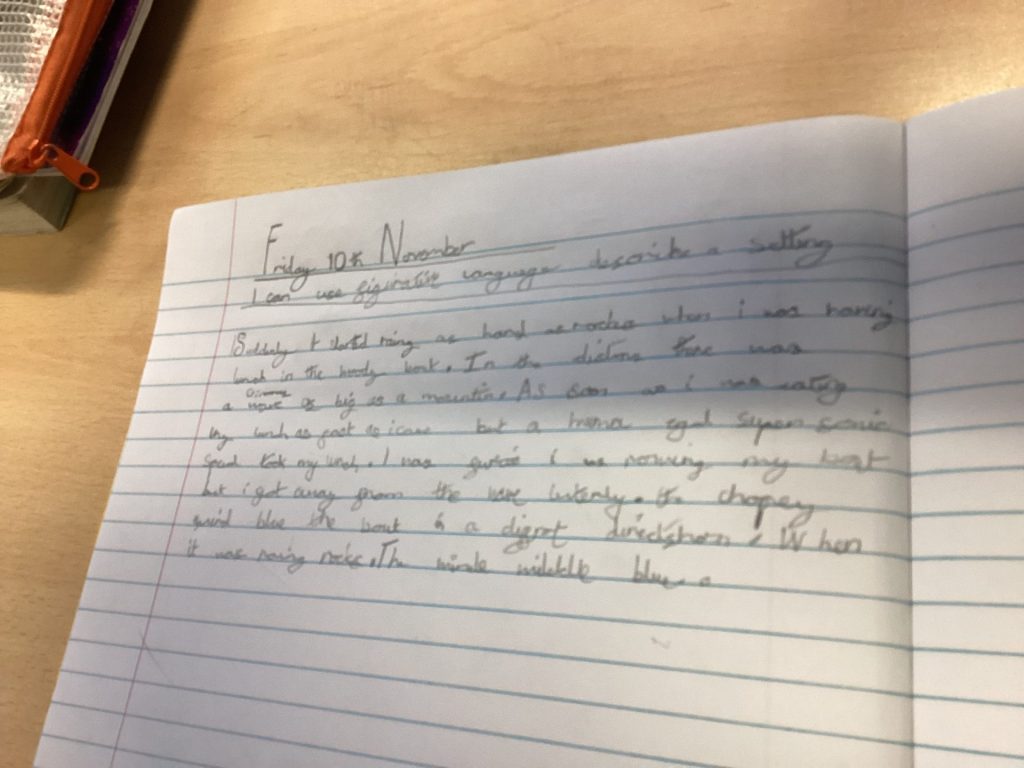 Friday 10th November
I can use figirative language describe a setting
Suddenly it started raing as hard as rocks when i was having
lunch in the boat. In the there was
a wave as big as a mountin. As soon as i was eating
my lunch as fast as i but a super sonic
speed took my lunch. I was i was rowing my boat
but i got away from the wave. the chopey
wind blue the bout in a difrot. When
it was raing rocks. The blue. a